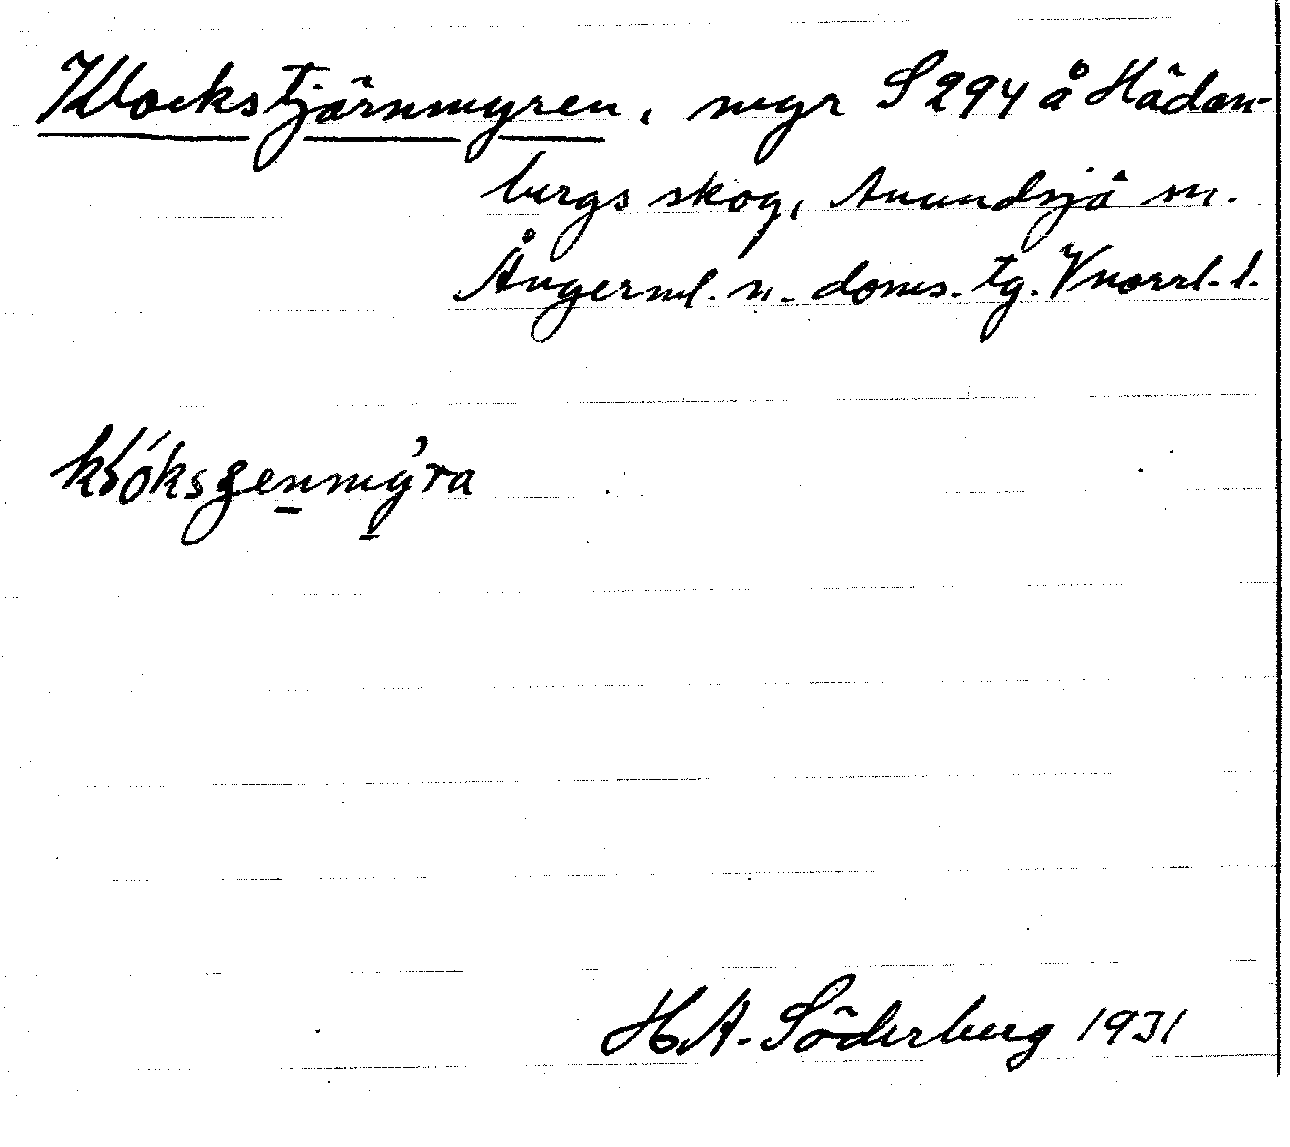 Klockstjärnmyren, myr S 294 å Hädan-
bergs skog, Anundsjö sn.
Ångerml. n. doms. tg. Vnorrl. l.
klóksʒenmy̓ra
H.A. Söderberg 1931